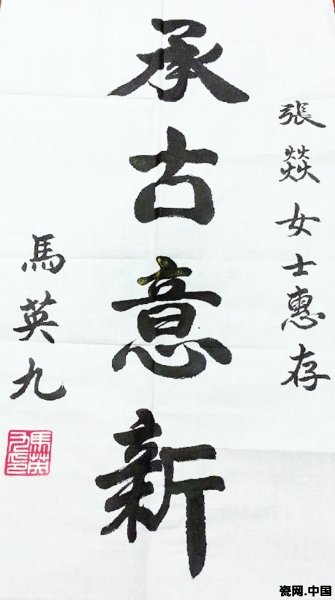 張燚女士惠存
承古意新
馬英九
馬英
九印
瓷网.中国